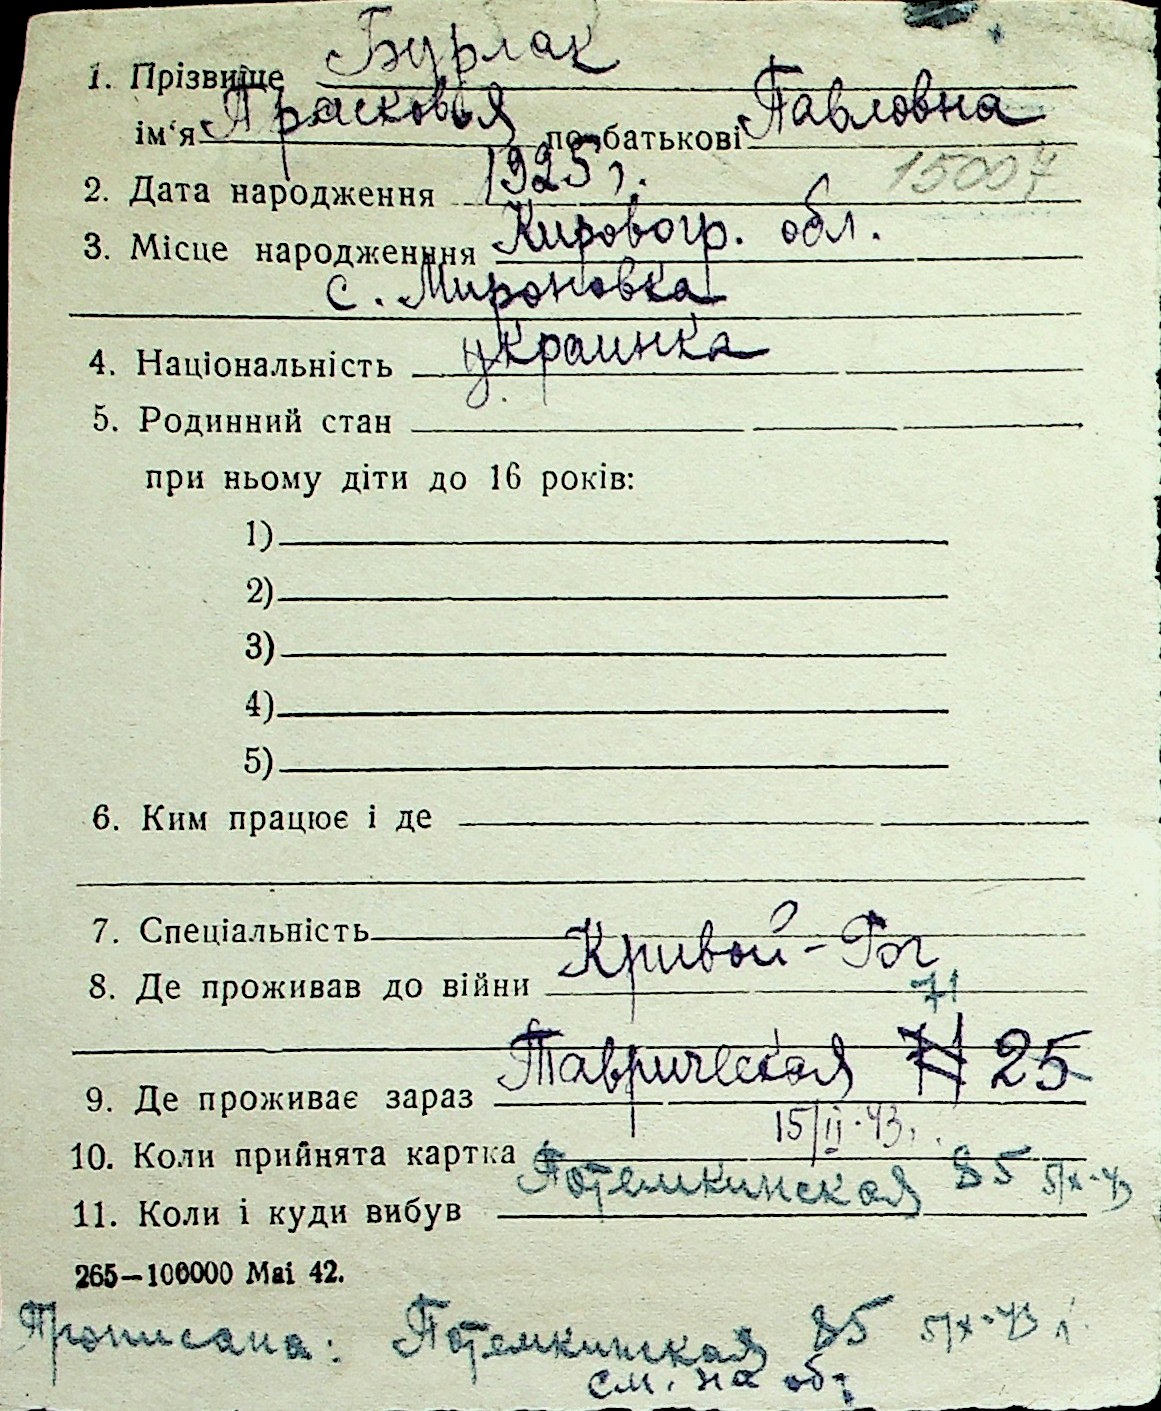 1. Прізвище Бурлак
ім‘я Прасковья по батькові Павловна
2. Дата народження 1925 г. 15007
3. Місце народженння Кировогр. обл.
с. Мироновка
4. Національність украинка
5. Родинний стан
при ньому діти до 16 років:
1)
2)
3)
4)
5)
6. Ким працює і де
7. Спеціальність
8. Де проживав до війни Кривой-Рог
71
9. Де проживає зараз Таврическая 25
10. Коли прийнята картка 15/II-43.
11. Коли і куди вибув Потемкинская 85 5/X-43
265—100000 Mai 42.
Прописана: Потемкинская 85 5/X-43 г.
см. на об.